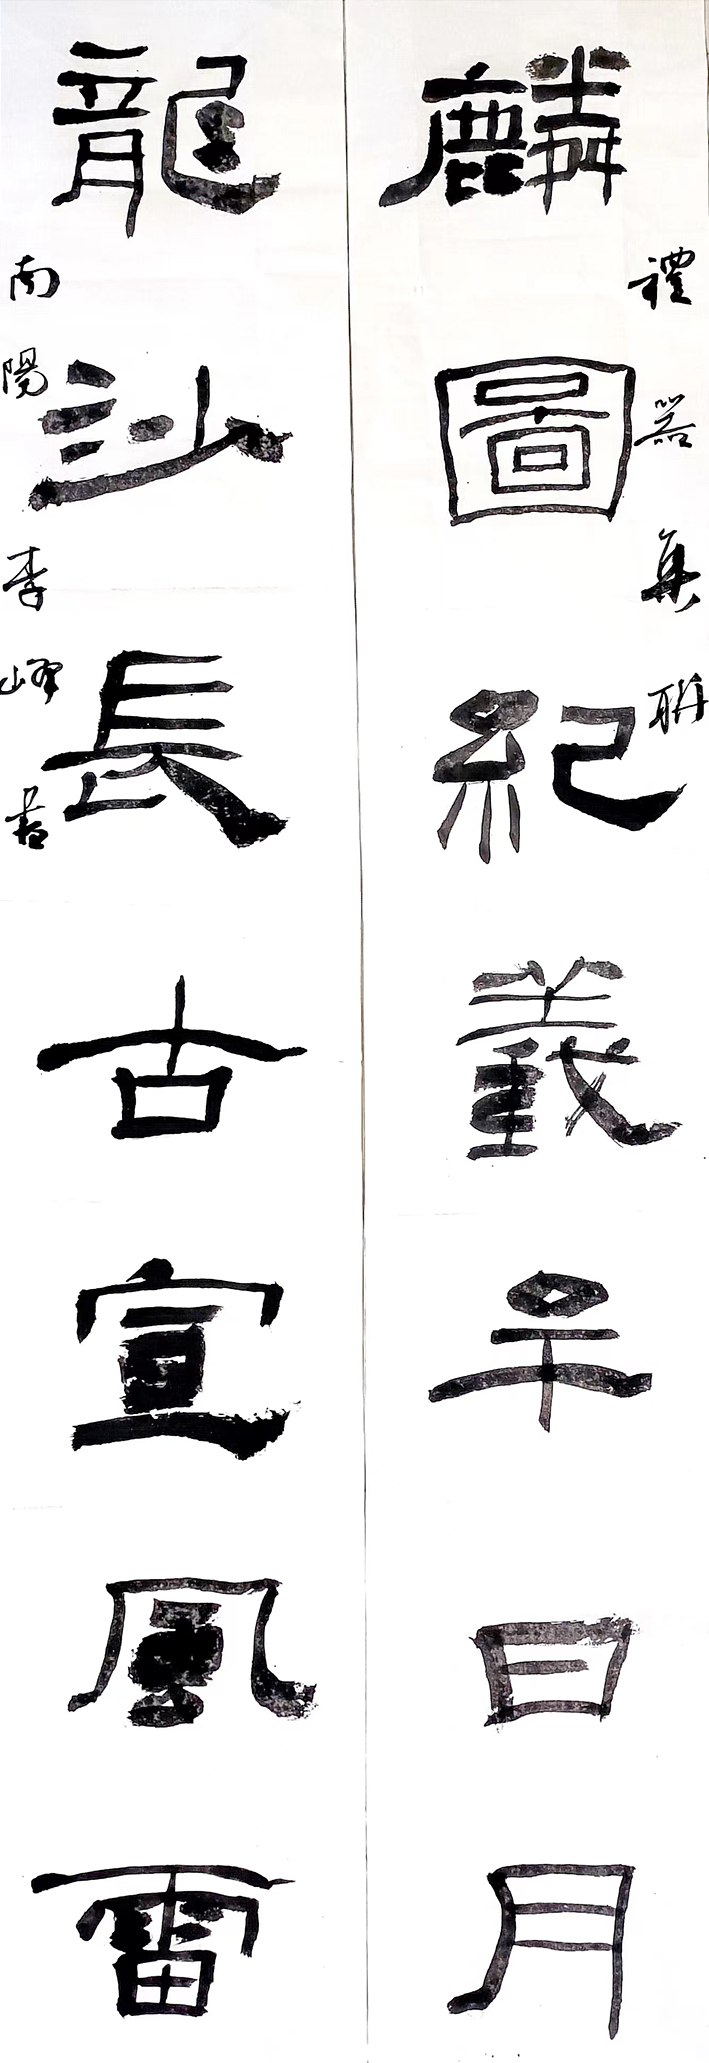 麟圖紀牟日月
禮器集聯
龍沙長古宣風雷
南陽李峰書